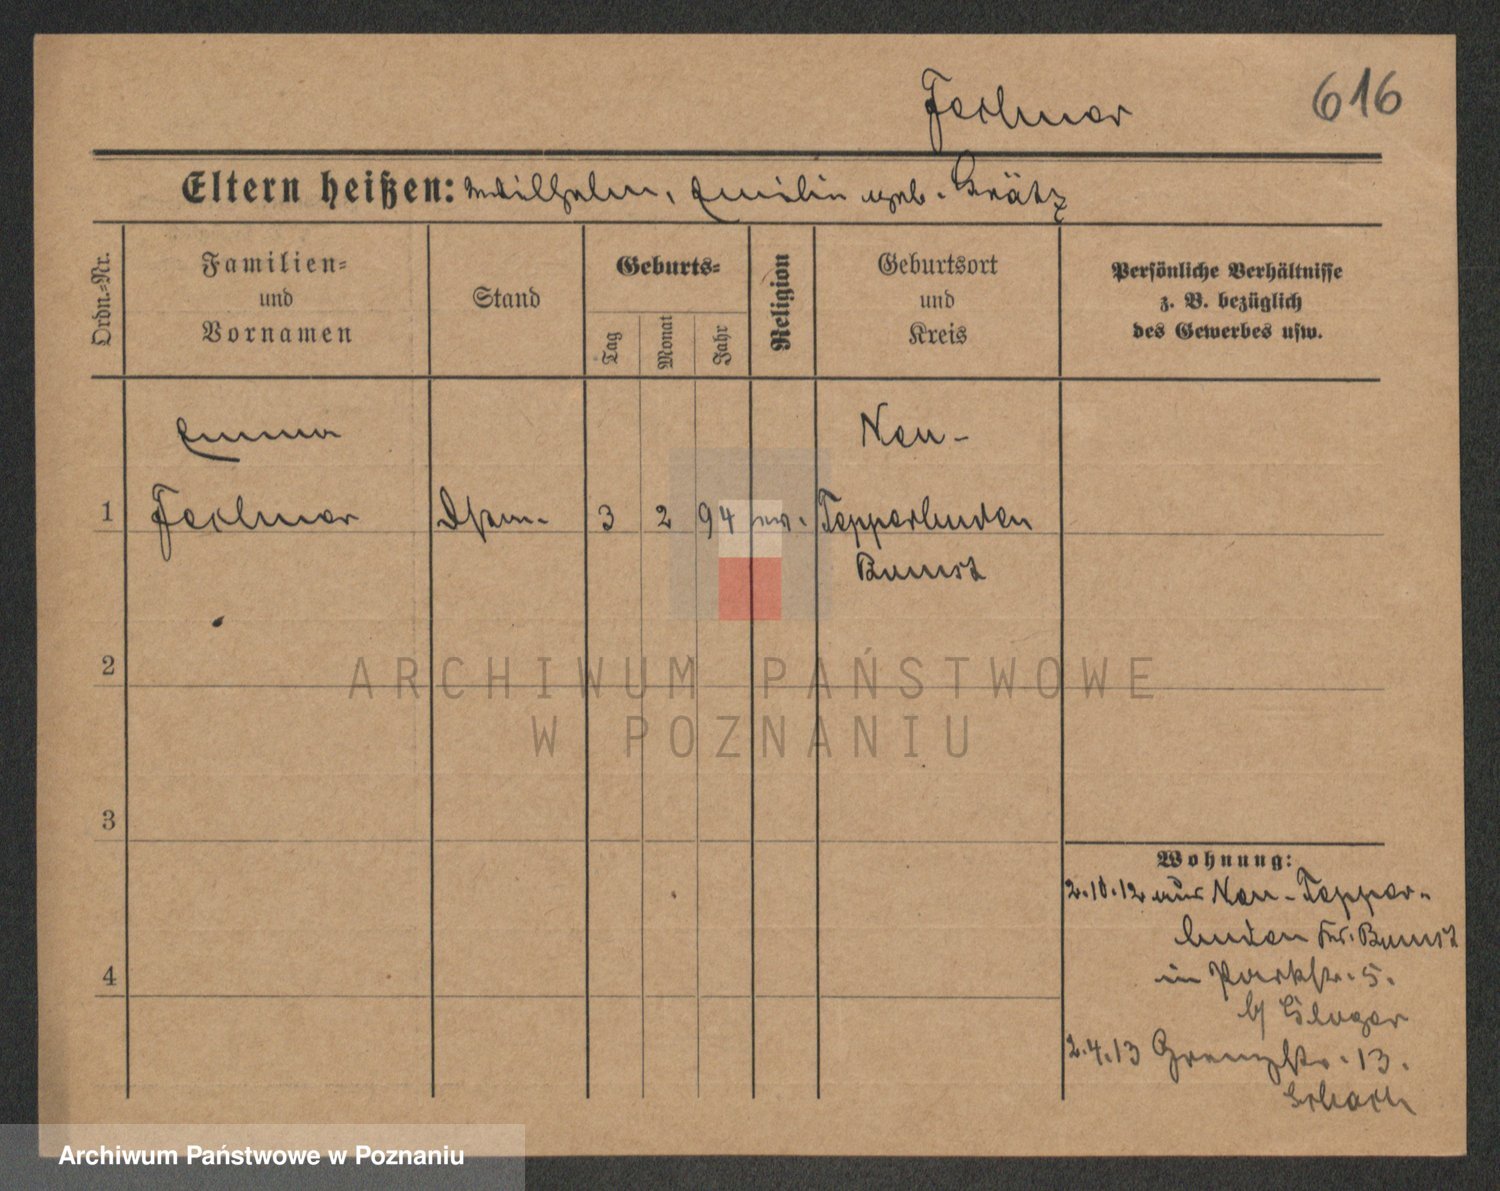 Fechner
616
Eltern heißen: Wilhelm, Emilie geb. Grätz
Ordn.-Nr.
Familien-
und
Vornamen
Stand
Geburts-
Tag
Monat
Jahr
Religion
Geburtsort
und
Kreis
Persönliche Verhältnisse
z. B. bezüglich
des Gewerbes usw.
Emma
Neu-
1
Fechner
3
2
94
ev.
Tepperbuden
Bomst
2
ARCHIWUM PAŃSTWOWE
W POZNANIU
3
Wohnung:
2.10.12 aus Neu-Tepper-
buden Kr. Bomst
4
in Parkstr. 5.
b/ Gloger
2.4.13 Grenzstr. 13.
Archiwum Państwowe w Poznaniu